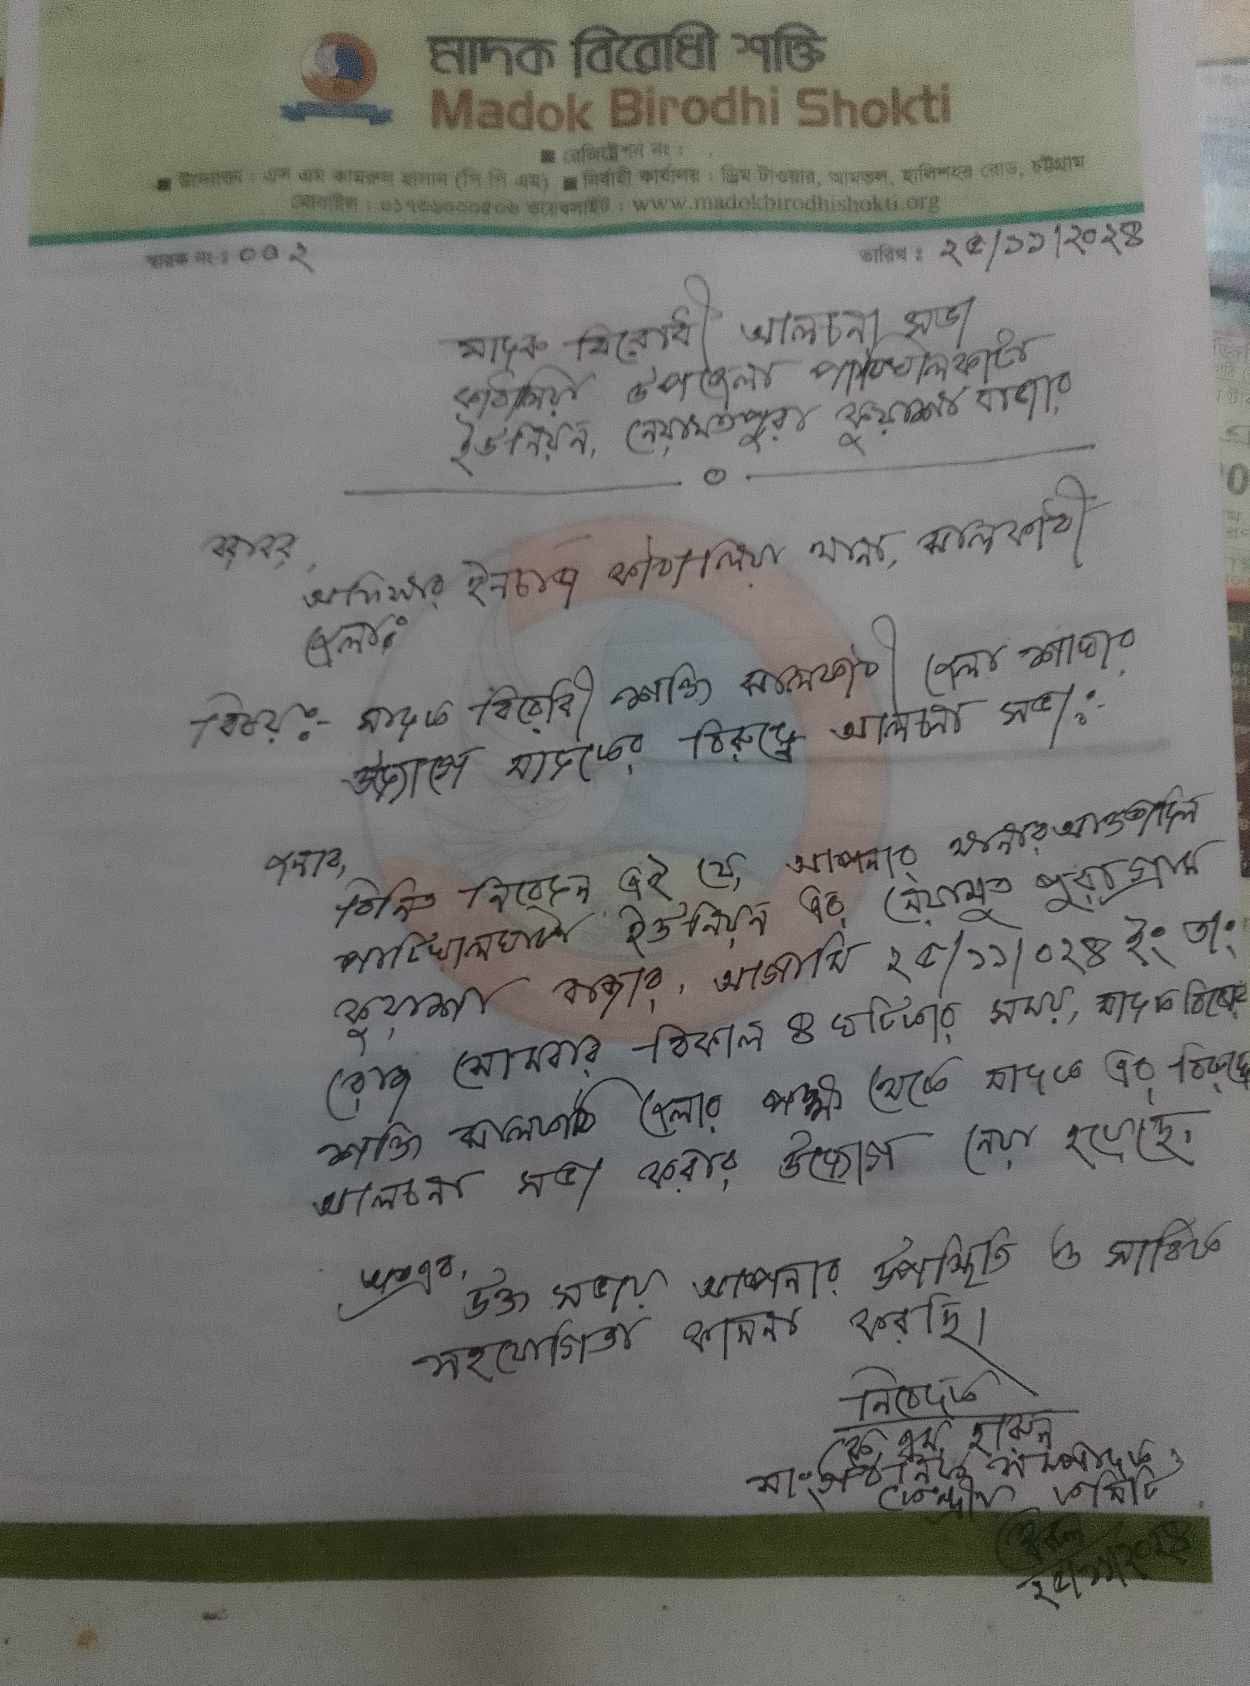 মাদক বিরোধী শক্তি
Madok Birodhi Shokti
■ রেজিষ্ট্রেশন নং :
■ উদ্যোক্তা : এস এম কামরুল হাসান (পি পি এম) ■ নির্বাহী কার্যালয় : ড্রিম টাওয়ার, আমতল, হালিশহর রোড, চট্টগ্রাম
মোবাইল : ওয়েবসাইট : www.madokbirodhishokti.org
স্মারক নং : ০৩২ তারিখ : ২৫/১১/২০২৪
মাদক বিরোধী আলচনা সভা
কাঠালিয়া উপজেলা পাটিখালঘাটা
ইউনিয়ন, নেয়ামতপুরা কুয়াশা বাজার
বরাবর,
অফিসার ইনচার্জ কাঠালিয়া থানা, ঝালকাঠী
জেলাঃ
বিষয়ঃ- মাদক বিরোধী শক্তি ঝালকাঠী জেলা শাখার
উদ্যোগে মাদকের বিরুদ্ধে আলচনা সভাঃ-
জনাব,
বিনিত নিবেদন এই যে, আপনার থানার আওতাদিন
পাটিখালঘাটা ইউনিয়ন এর নেয়ামত পুরা গ্রাম
কুয়াশা বাজার, আগামি ২৫/১১/০২৪ ইং তাং
রোজ সোমবার বিকাল ৪ ঘটিকার সময়, মাদক বিরোধী
শক্তি ঝালকাঠি জেলার পক্ষ থেকে মাদক এর বিরুদ্ধে
আলচনা সভা করার উদ্যোগ নেয়া হয়েছে।
অতএব,
উক্ত সভায় আপনার উপস্থিতি ও সার্বিক
সহযোগিতা কামনা করছি।
নিবেদক
কে, এম,
সাংগঠনিক সম্পাদক,
কেন্দ্রীয় কমিটি
২৫/১১/২০২৪